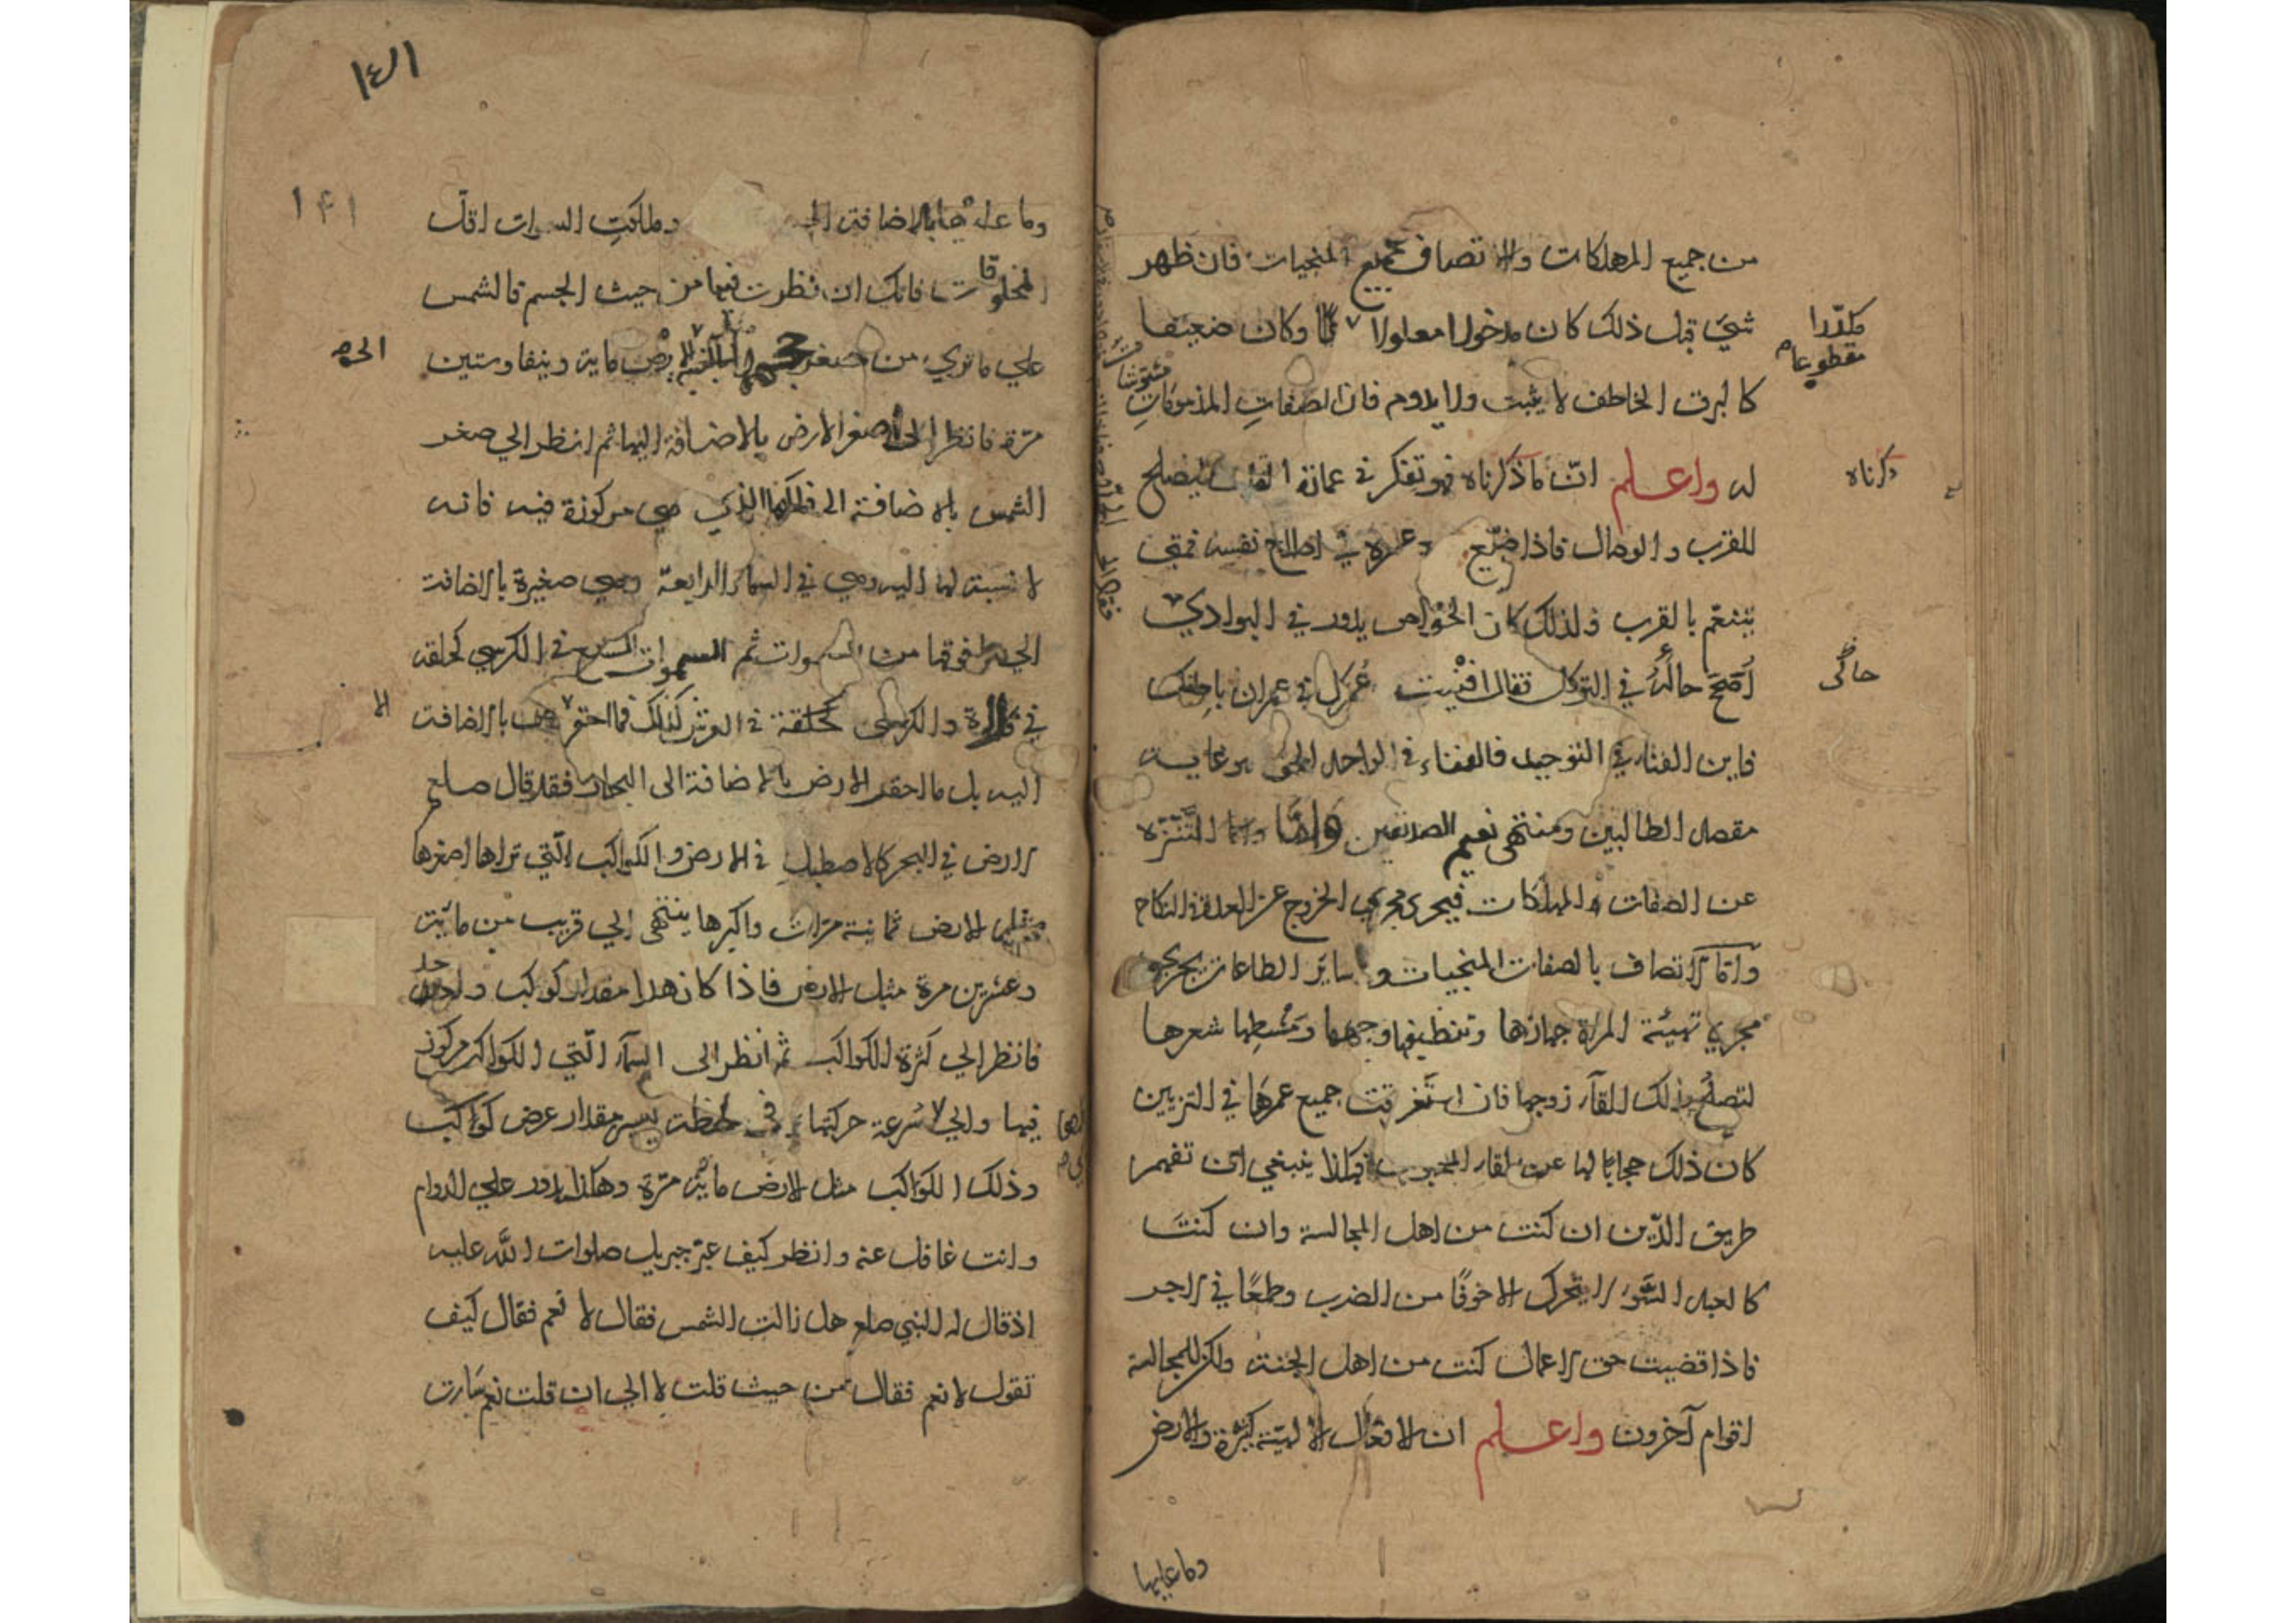 من جميع المهلكات والاتصاف بجميع المنجيات فان ظهر
شيء قبل ذلك كان مدخولا معلولا وكان ضعيفا
مكدرا
مقطوعا
كالبرق الخاطف لا يثبت ولا يدوم فان الصفات المذمومات
له واعلم ان ما ذكرناه هو تفكر في عمارة ليصلح
ذكرناه
للقرب والوصال فاذا ضيع عمره في اصلاح نفسه فمتى
يتنعم بالقرب ولذلك كان الخواص يدور في البوادي
اصحح حالي في التوكل فقال افنيت عمرك في عمران باطنك
حالى
فاين الفناء في التوحيد فالفناء في الواحد الحق هو غاية
مقصد الطالبين ومنتهى نعيم الصديقين واما التنزه
عن الصفات المهلكات فيجرى مجري الخروج عن العدة في النكاح
واما الاتصاف بالصفات المنجيات وساير الطاعات يجري
مجري تهيئة المراة جهازها وتنظيفها وجهها ومشطها شعرها
لتصلح بذلك للقآء زوجها فان استغرقت جميع عمرها في التزيين
كان ذلك حجابا لها عن لقاء المحبوب فهكذا ينبغي ان تفهم
طريق الدين ان كنت من اهل المجالسة وان كنت
كالعبد السوء لا يتحرك الا خوفا من الضرب وطمعا في الاجر
فاذا قضيت حق الاعمال كنت من اهل الجنة ولكن للمجالسة
اقوام آخرون واعلم ان الافعال الالهية كثيرة والارض
وما عليها
١٤١
١۴١
وما عليها بالاضافة وملكوت السموات اقل
المخلوقات فانك ان نظرت فيها من حيث الجسم فالشمس
علي ما تري من صغر الارض ماية ونيفا وستين
مرة فانظر الى صغر الارض بالاضافة اليها ثم انظر الي صغر
الشمس بالاضافة الى فلكها الذي هي مركوزة فيه فانه
لا نسبة لها اليه وهي في السماء الرابعة وهي صغيرة بالاضافة
الي ما فوقها من السموات ثم السموات السبع في الكرسي كحلقة
في فلاة والكرسي كحلقة في العرش كذلك فما احقر بالاضافة
اليه بل ما احقر الارض بالاضافة الى البحار فقد قال صلعم
الارض في البحر كالاصطبل في الارض والكواكب التي تراها اصغرها
مثل الارض ثمانية مرات واكبرها ينتهى الي قريب من ماية
وعشرين مرة مثل الارض فاذا كان هذا مقدار كوكب واحد
فانظر الي كثرة الكواكب ثم انظر الى السمآء التي الكواكب مركوز
فيها والي سرعة حركتها في لحظة يسير مقدار عرض كواكب
وذلك الكواكب مثل الارض ماية مرة وهكذا يدور علي الدوام
وانت غافل عنه وانظر كيف عبر جبريل صلوات الله عليه
اذ قال له النبي صلعم هل زالت الشمس فقال لا نعم فقال كيف
تقول لا نعم فقال من حيث قلت لا الي ان قلت نعم سارت